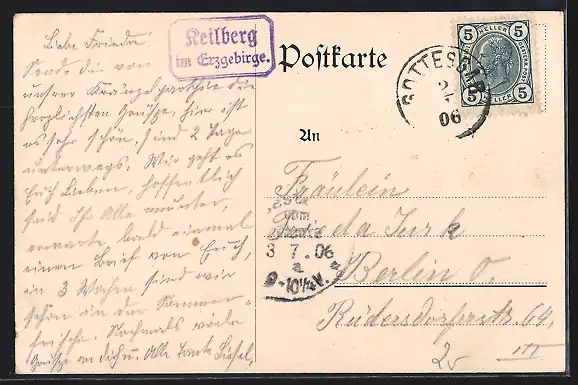 Liebe Frieda.
Sende dir von
unserer Kränzelparthie die
herzlichsten Grüsse, hier ist
es sehr schön, sind 2 Tage
unterwegs. Wie geht es
Euch Lieben, hoffentlich
seid Ihr Alle munter,
erwarte bald einmal
einen Brief von Euch,
in 3 Wochen sind wir
schon in der Sommer-
frische. Nochmals viele
Grüsse an dich u. Alle Tante Liesel,
Keilberg
im Erzgebirge.
Postkarte
5 HELLER 5
5 HELLER 5
GOTTESGAB
06
An
Fräulein
Frieda Turk
Berlin O.
Rüdersdorferstr. 64,
III
3 7.06
9-10½V.